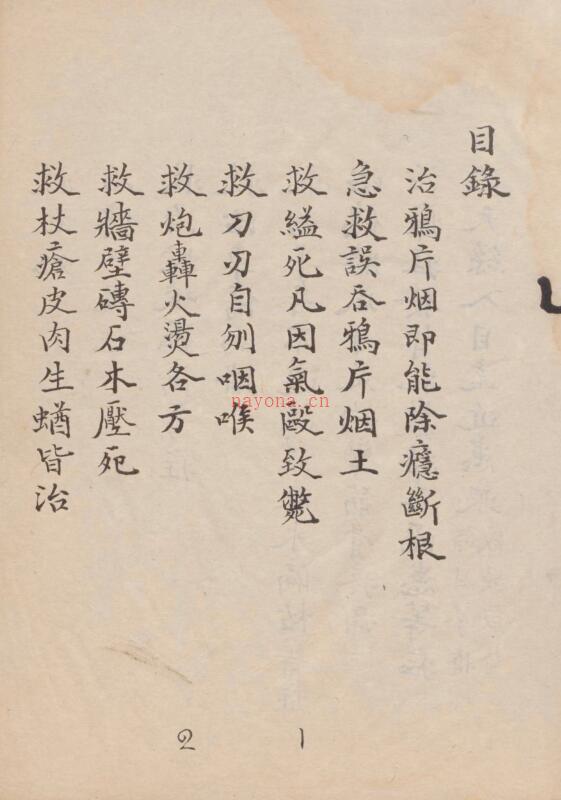 目錄
治鴉片烟即能除癮斷根
急救誤吞鴉片烟土
救縊死凡因氣毆致斃
救刀刃自刎咽喉
救炮轟火燙各方
救牆壁磚石木壓死
救杖瘡皮肉生蝤皆治
1
2
nayona.cn